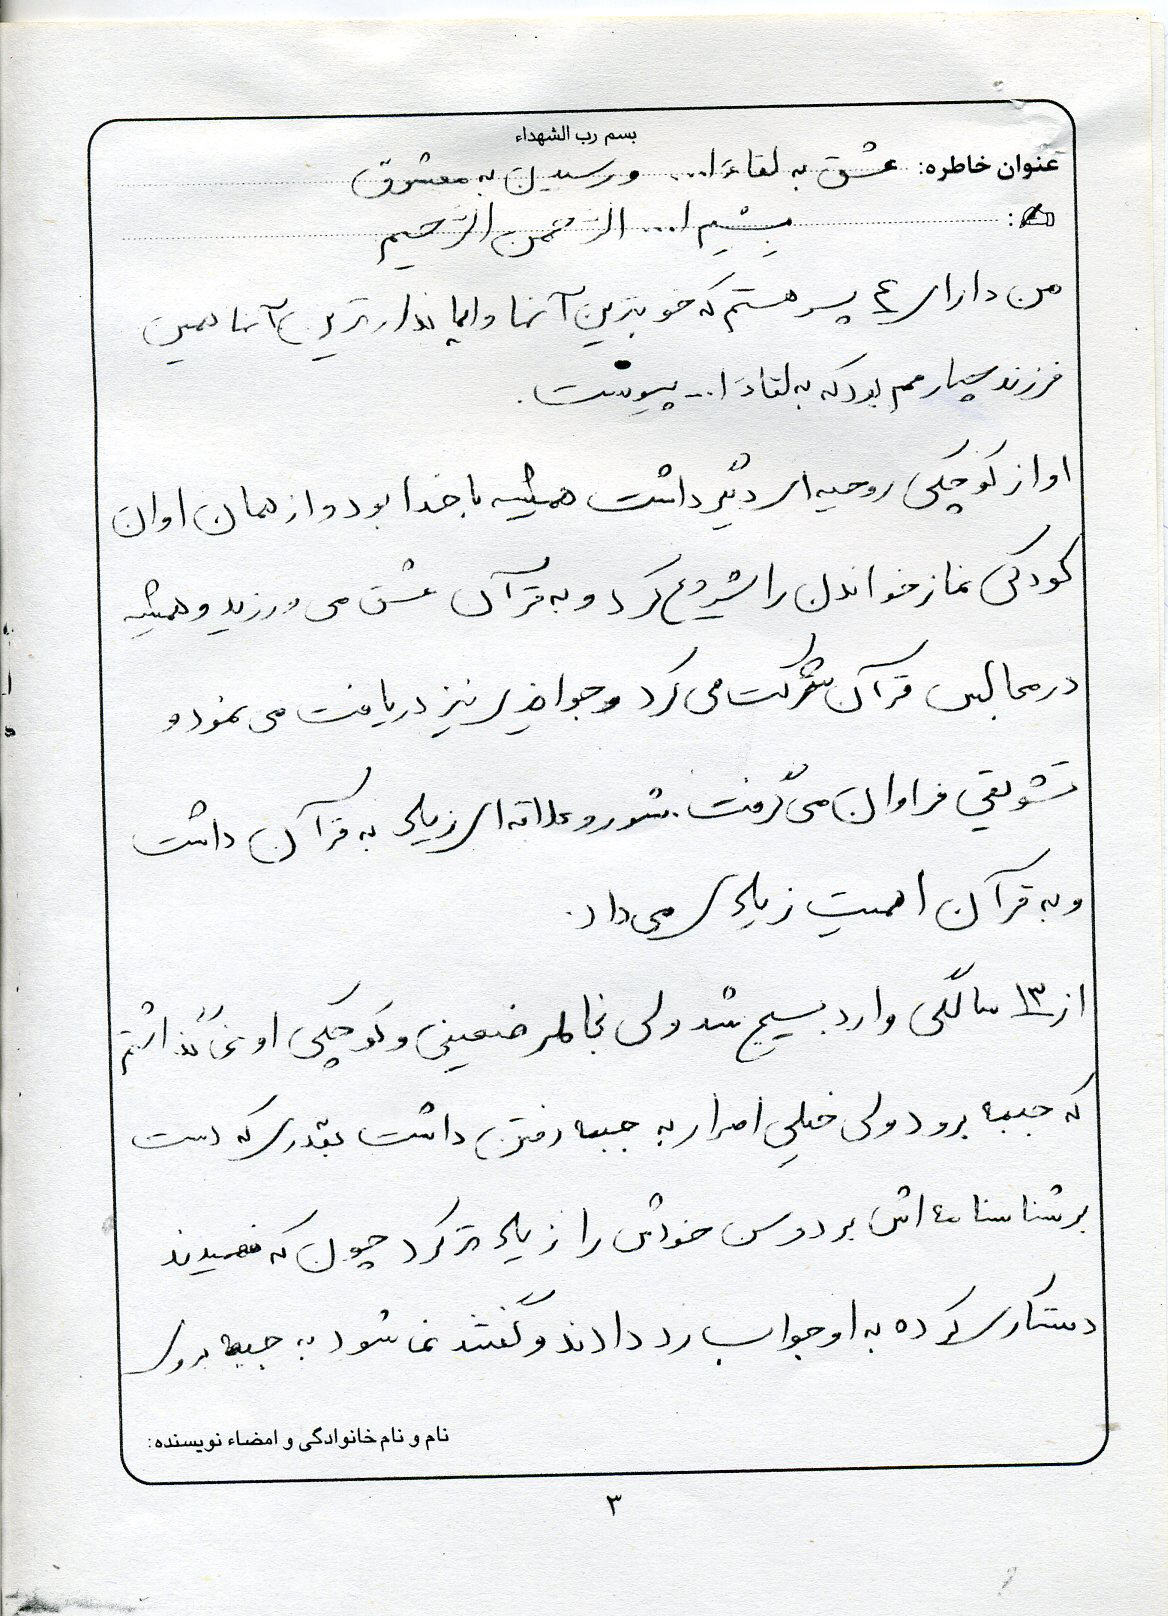 بسم رب الشهداء
عنوان خاطره: عشق به لقاء ا... و رسیدن به معشوق
بسم ا... الرحمن الرحیم
من دارای ۴ پسر هستم که خوبترین آنها و ایماندارترین آنها همین
فرزند چهارمم بود که به لقاء ا... پیوست.
او از کوچکی روحیه ای دیگر داشت همیشه با خدا بود و از همان اوان
کودکی نماز خواندن را شروع کرد و به قرآن عشق می ورزید و همیشه
در مجالس قرآن شرکت می کرد و جوایزی نیز دریافت می نمود و
تشویقی فراوان می گرفت. شور و علاقه ای زیادی به قرآن داشت
و به قرآن اهمیت زیادی می داد.
از ۱۳ سالگی وارد بسیج شد ولی بخاطر ضعیفی و کوچکی او نمی گذاشتم
که جبهه برود ولی خیلی اصرار به جبهه رفتن داشت بقدری که دست
بر شناسنامه اش برد و سن خودش را زیادتر کرد چون که فهمیدند
دستکاری کرده به او جواب رد دادند و گفتند نمی شود به جبهه بروی
نام و نام خانوادگی و امضاء نویسنده:
۳